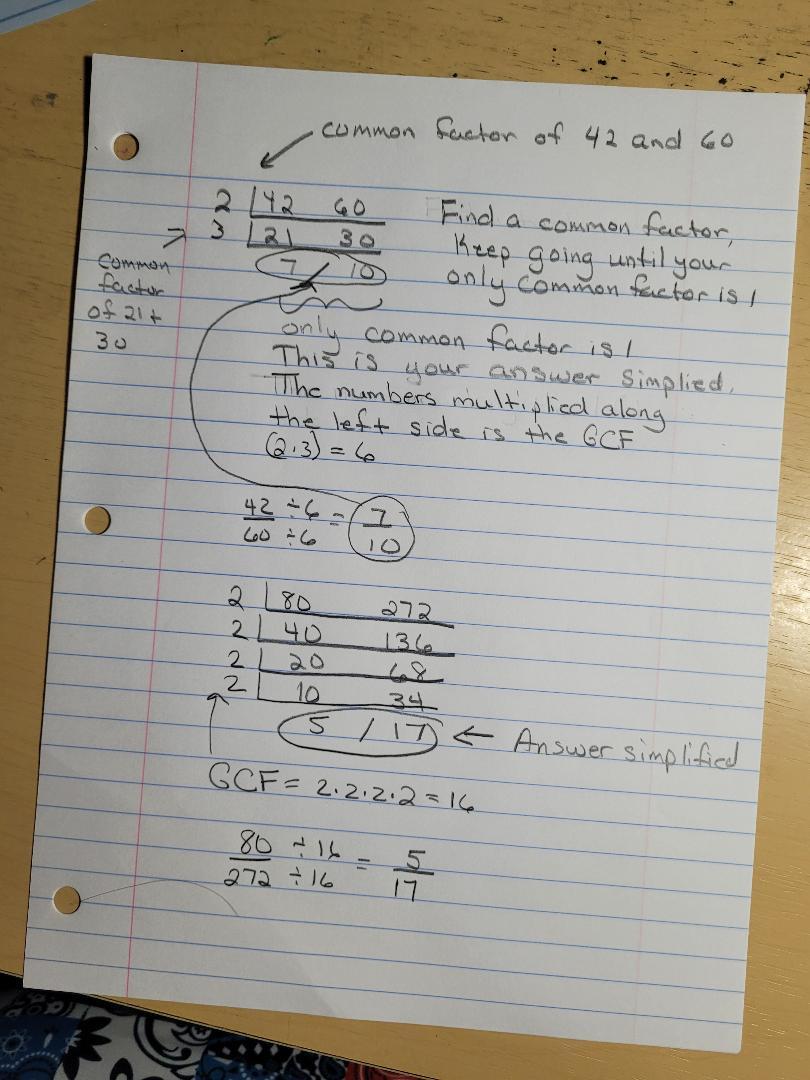 common factor of 42 and 60
2 42 60
3 21 30
7 / 10
Find a common factor,
Keep going until your
only common factor is 1
common
factor
of 21 +
30
only common factor is 1
This is your answer simplied.
The numbers multiplied along
the left side is the GCF
(2·3) = 6
42 ÷6 = 7
60 ÷6 10
2 80 272
2 40 136
2 20 68
2 10 34
5 / 17 ← Answer simplified
GCF = 2·2·2·2 = 16
80 ÷16 = 5
272 ÷16 17